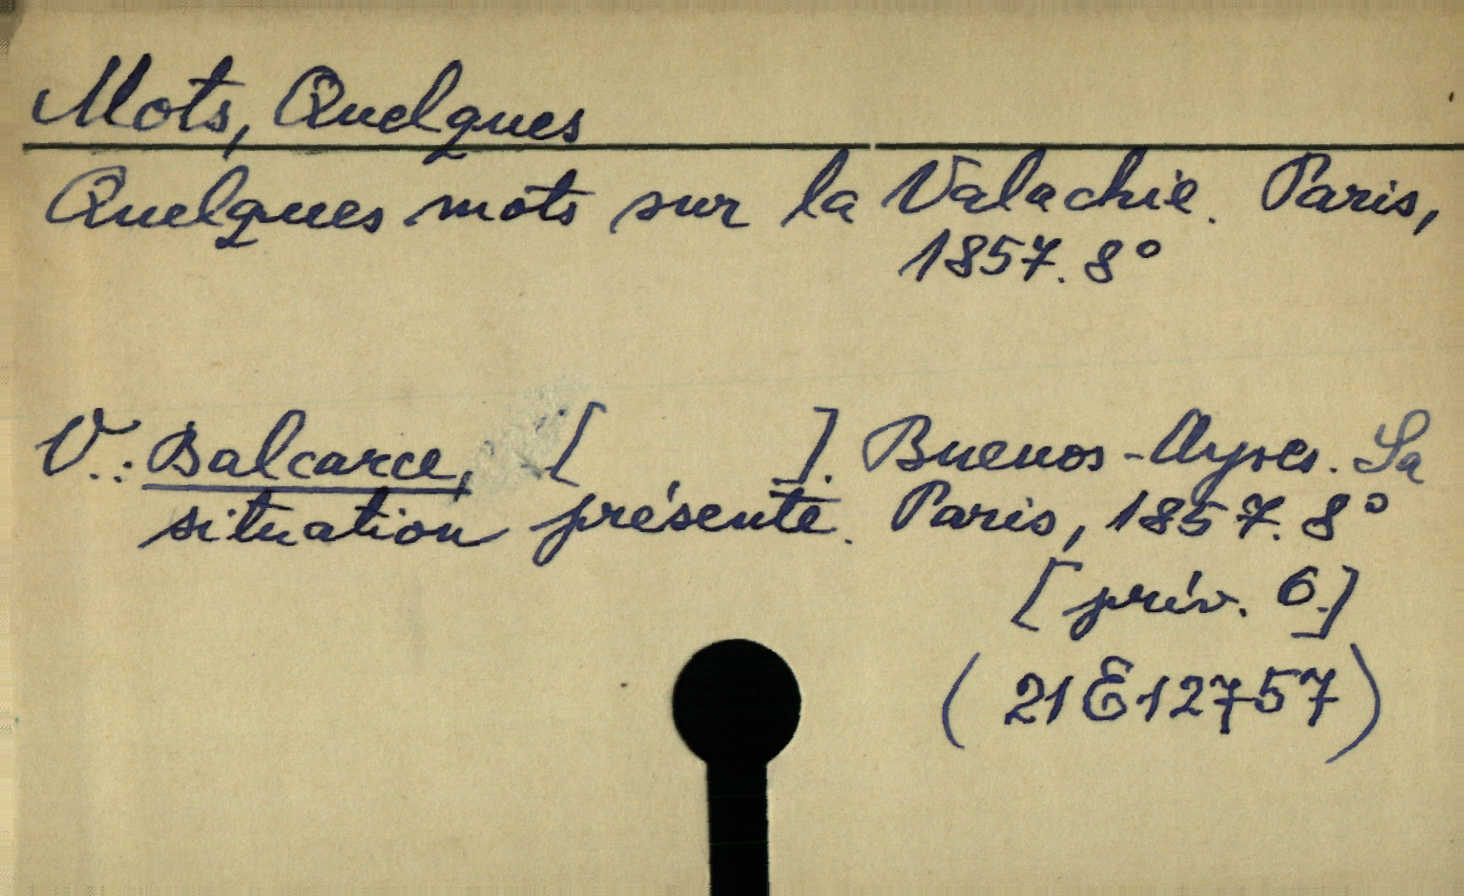 Mots, Quelques
Quelques mots sur la Valachie. Paris,
1857. 8°
V.: Balcarce, [ ]. Buenos-Ayres. Sa
situation présente. Paris, 1857. 8°
[priv. 6.]
(21E12757)